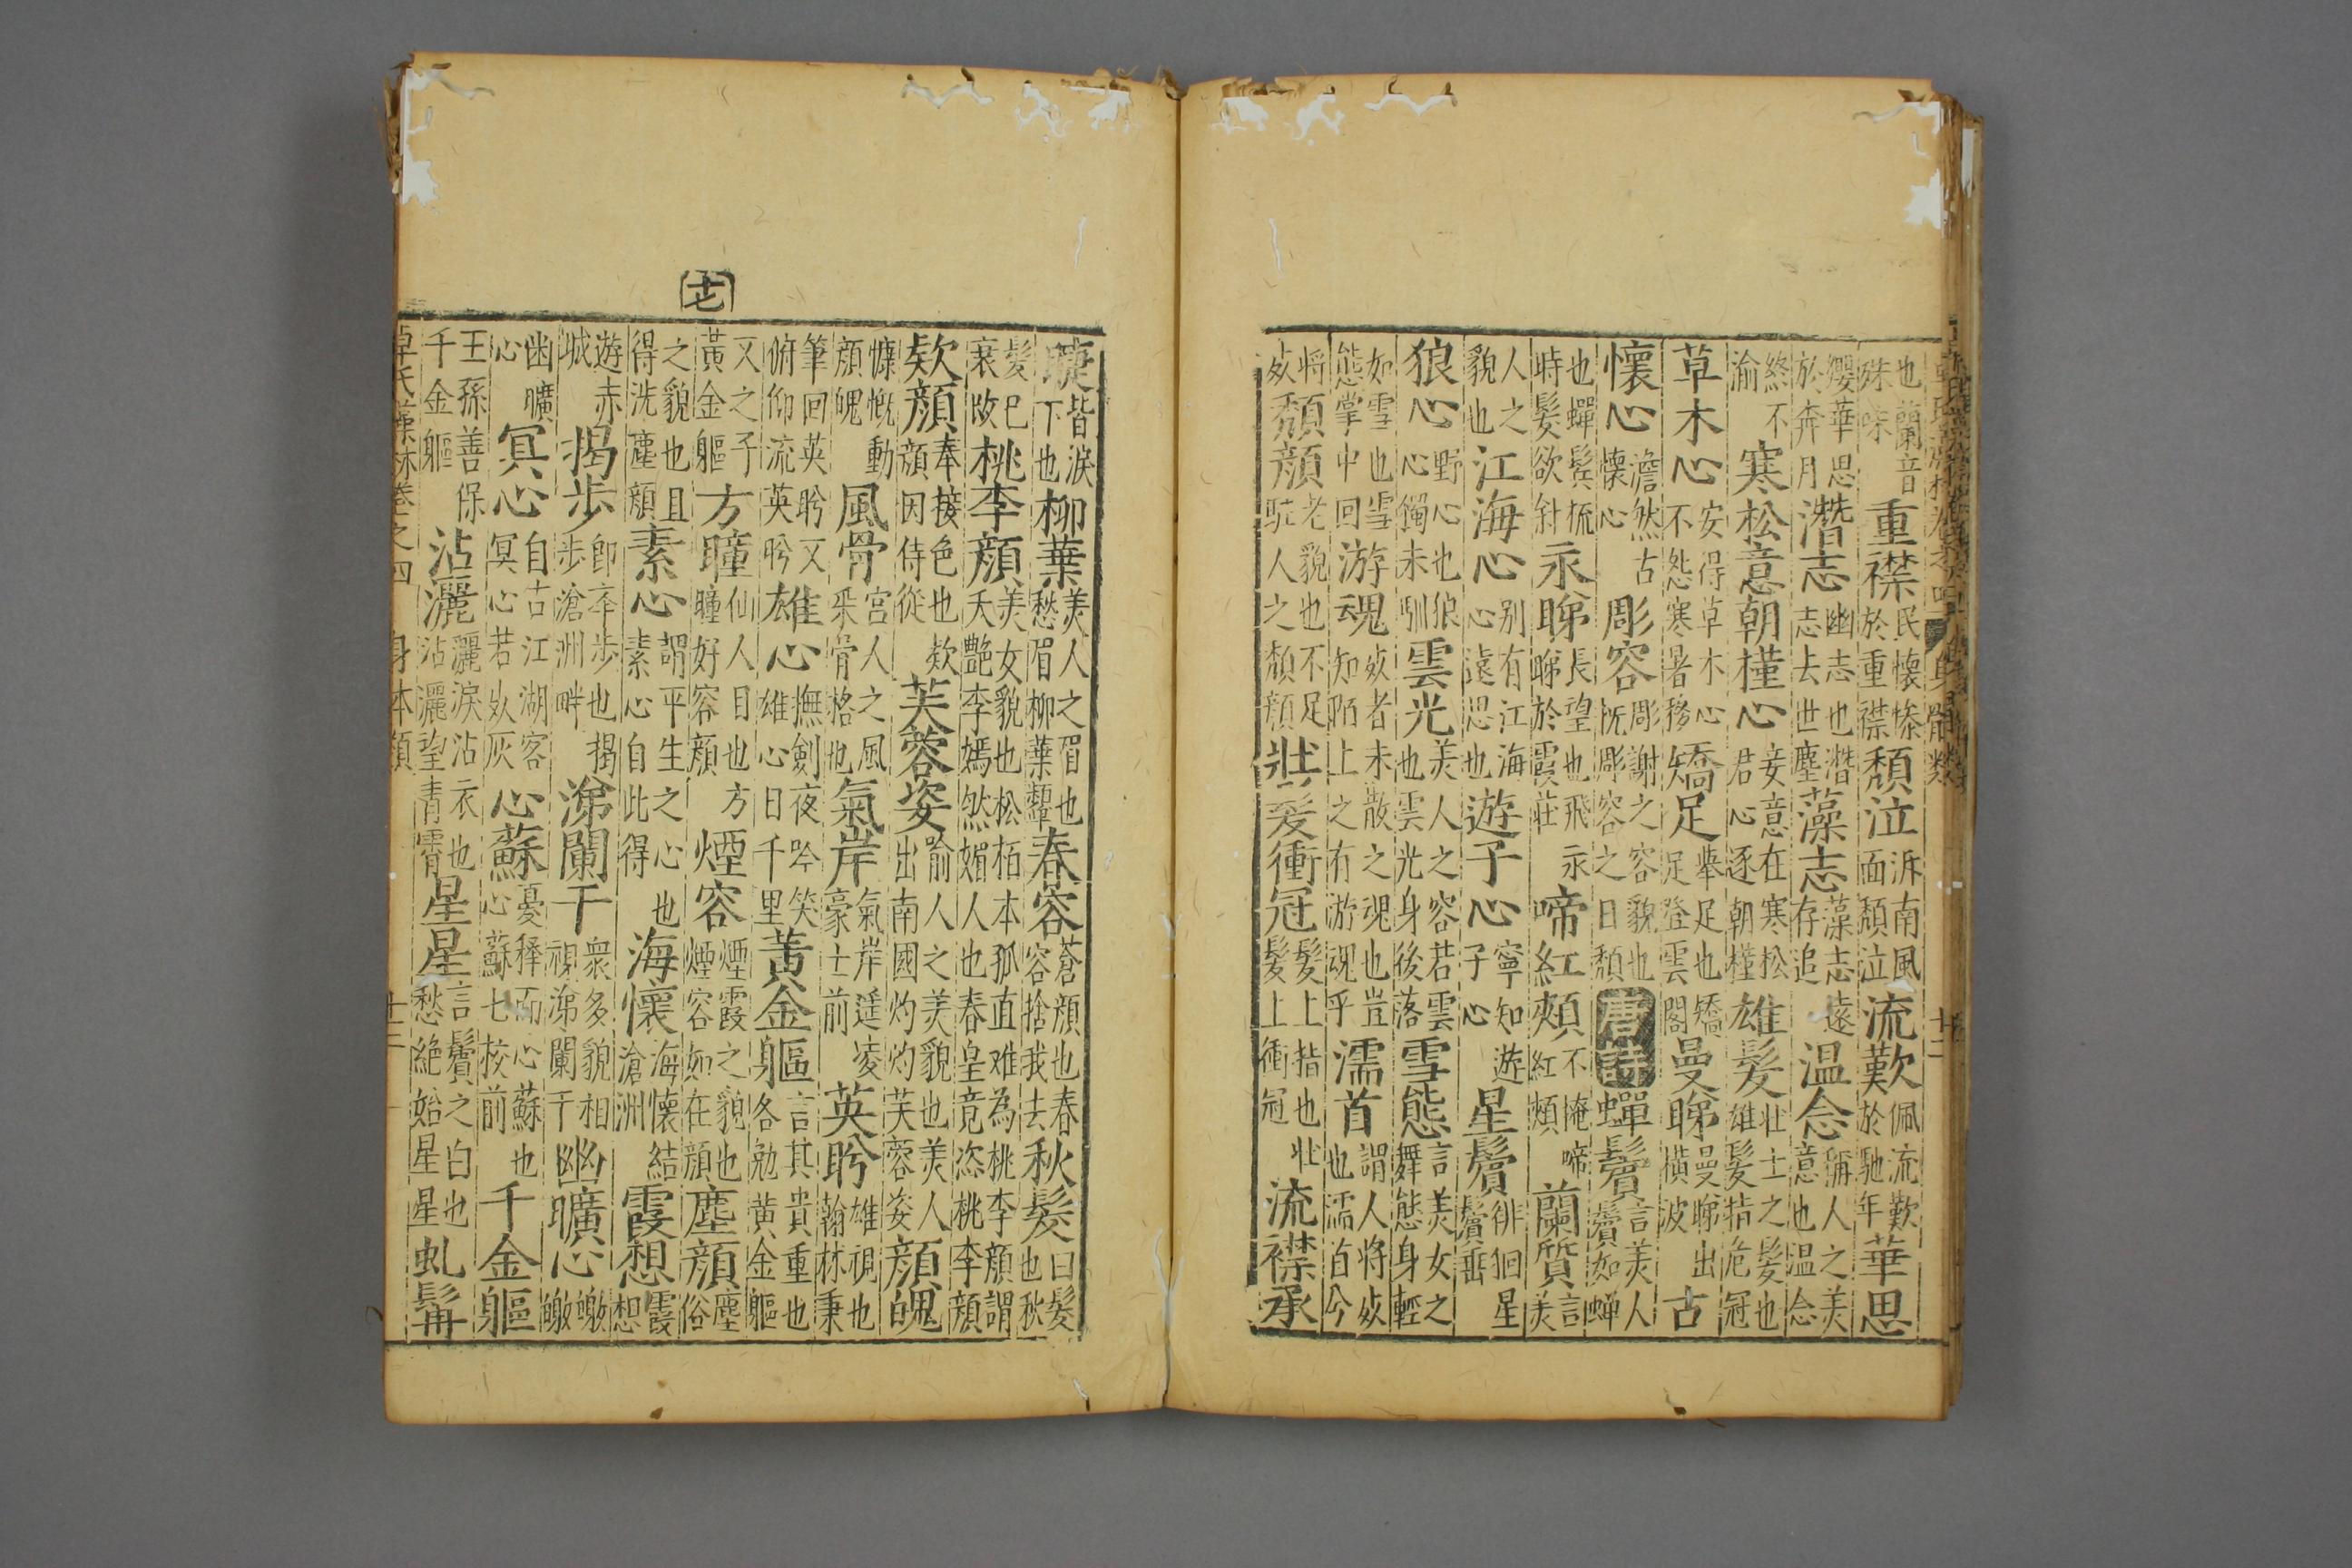 卓氏藻林卷之四 身體類 十二
也蘭音殊味 重襟 民懷慘於重襟 頹泣 泝南風面頹泣 流歎 佩流歎於馳年 華思
纓華思於奔月 潛志 幽志也潛志去世塵 藻志 藻志遠存追 温念 稱人之美意也温念
終不渝 寒松意朝槿心 妾意在寒松君心逐朝槿 雄髮 壮士之髮也雄髮指危冠
草木心 安得草木心不怨寒暑移 矯足 舉足也矯足登雲閣 曼睇 曼睇出橫波 古
懷心 澹然古懷心 彫容 彫謝之容貌也慨彫容之日頹 唐詩 蟬鬢 言美人鬢如蟬
也蟬鬢梳時髮欲斜 永睇 長望也飛永睇於霞莊 啼紅頰 不掩啼紅頰 蘭質 言美
人之貌也 江海心 别有江海心遠思也 遊子心 寧知遊子心 星鬢 徘徊星鬢垂
狼心 野心也狼心獨未馴 雲光 美人之容若雲也雲光身後落 雪態 言美女之舞態身輕
如雪也雪態掌中回 游魂 歿者未散之魂也豈知陌上之有游魂乎 濡首 謂人将歿也濡首今
将歿 頹顏 老貌也不足駐人之頹顏 壯髮衝冠 髮上指也壮髮上衝冠 流襟承
睫 皆淚下也 柳葉 美人之眉也愁眉柳葉顰 春容 蒼顏也春容捨我去 秋髮 曰髮也秋
髮已衰改 桃李顏 美女貌也松栢本孤直难為桃李顏謂夭艷李嫣然媚人也春皇竟恣桃李顏
欵顏 奉接色也欵顏因侍從 芙蓉姿 喻人之美貌也美人出南國灼灼芙蓉姿 顏魄
慷慨動顏魄 風骨 宮人之風采骨格也 氣岸 氣岸遥凌豪士前 英盻 雄視也翰林秉
筆回英盻又俯仰流英盻 雄心 撫劍夜吟笑雄心日千里 黃金軀 言其貴重也各勉黃金軀
又之子黃金軀 方瞳 仙人目也方瞳好容顏 煙容 煙霞之貌也煙容如在顏 塵顏 塵俗
之貌也且得洗塵顏 素心 謂平生之心也素心自此得 海懷 海懷結滄洲 霞想 霞想
遊赤城 揭步 即卒步也揭步滄洲畔 涕闌干 衆多貌相視涕闌干 幽曠心 皦皦
幽曠心 冥心 自古江湖客冥心若歿灰 心蘇 憂釋而心蘇也心蘇七校前 千金軀
王孫善保千金軀 沾灑 灑淚沾衣也沾灑望青霄 星星 言鬢之白也愁絶始星星 虬髯
卓氏藻林卷之四 身体類 十二
十七